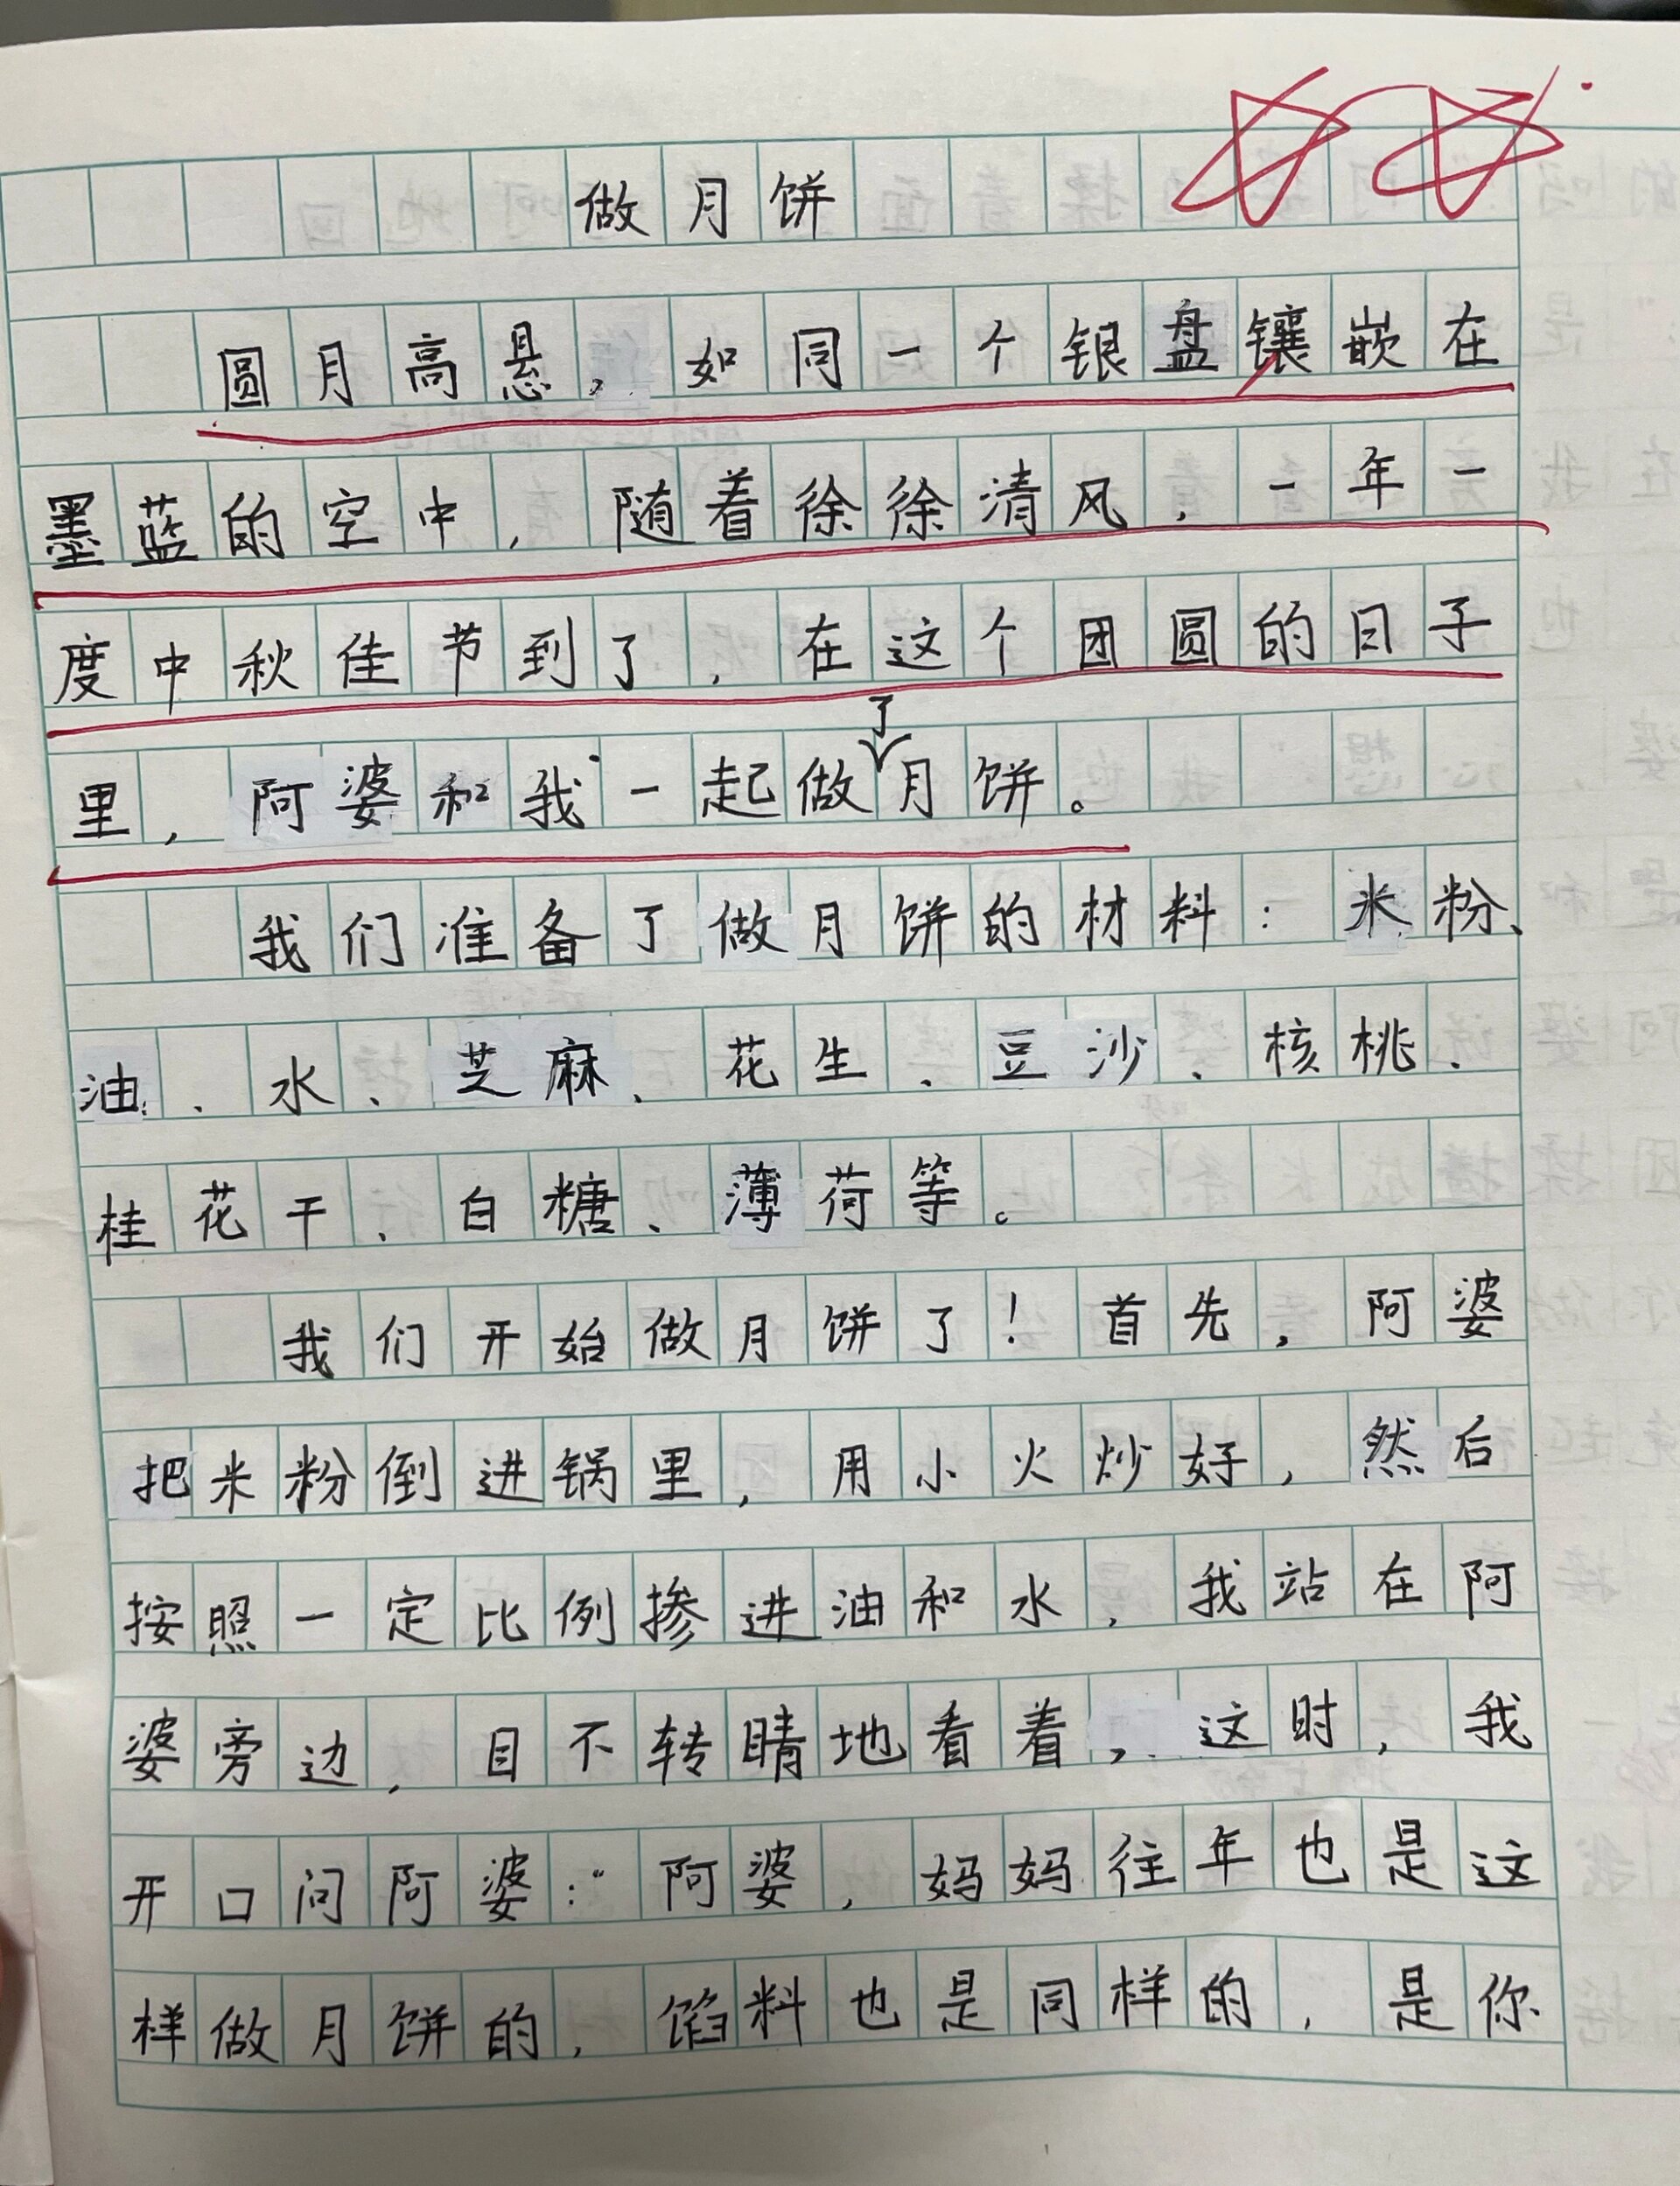 做月饼
圆月高悬，如同一个银盘镶嵌在
墨蓝的空中，随着徐徐清风，一年一
度中秋佳节到了，在这个团圆的日子
了
里，阿婆和我一起做月饼。
我们准备了做月饼的材料：米粉、
油、水、芝麻、花生、豆沙、核桃、
桂花干、白糖、薄荷等。
我们开始做月饼了！首先，阿婆
把米粉倒进锅里，用小火炒好，然后
按照一定比例掺进油和水，我站在阿
婆旁边，目不转睛地看着，这时，我
开口问阿婆：“阿婆，妈妈往年也是这
样做月饼的，馅料也是同样的，是你